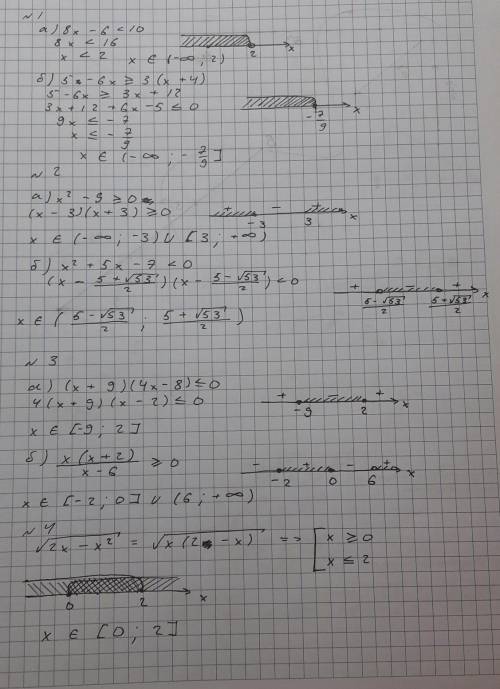 № 1
а) 8x - 6 < 10
8x < 16
x < 2 x ∈ (-∞ ; 2)
2 x
б) 5 - 6x ≥ 3 (x + 4)
5 - 6x ≥ 3x + 12
3x + 12 + 6x - 5 ≤ 0
9x ≤ - 7
x ≤ - 7/9
-7/9 x
x ∈ (-∞ ; - 7/9]
№ 2
а) x² - 9 ≥ 0
(x - 3)(x + 3) ≥ 0
+ - +
-3 3 x
x ∈ (-∞ ; -3) ∪ [3 ; +∞)
б) x² + 5x - 7 < 0
(x - (5 + √53)/2)(x - (5 - √53)/2) < 0
+ - +
(5 - √53)/2 (5 + √53)/2 x
x ∈ ((5 - √53)/2 ; (5 + √53)/2)
№ 3
а) (x + 9)(4x - 8) ≤ 0
4(x + 9)(x - 2) ≤ 0
+ - +
-9 2 x
x ∈ [-9 ; 2]
б) x(x + 2)/(x - 6) ≥ 0
- + - +
-2 0 6 x
x ∈ [-2 ; 0] ∪ (6 ; +∞)
№ 4
√(2x - x²) = √(x(2 - x)) => [x ≥ 0
x ≤ 2
0 2 x
x ∈ [0 ; 2]